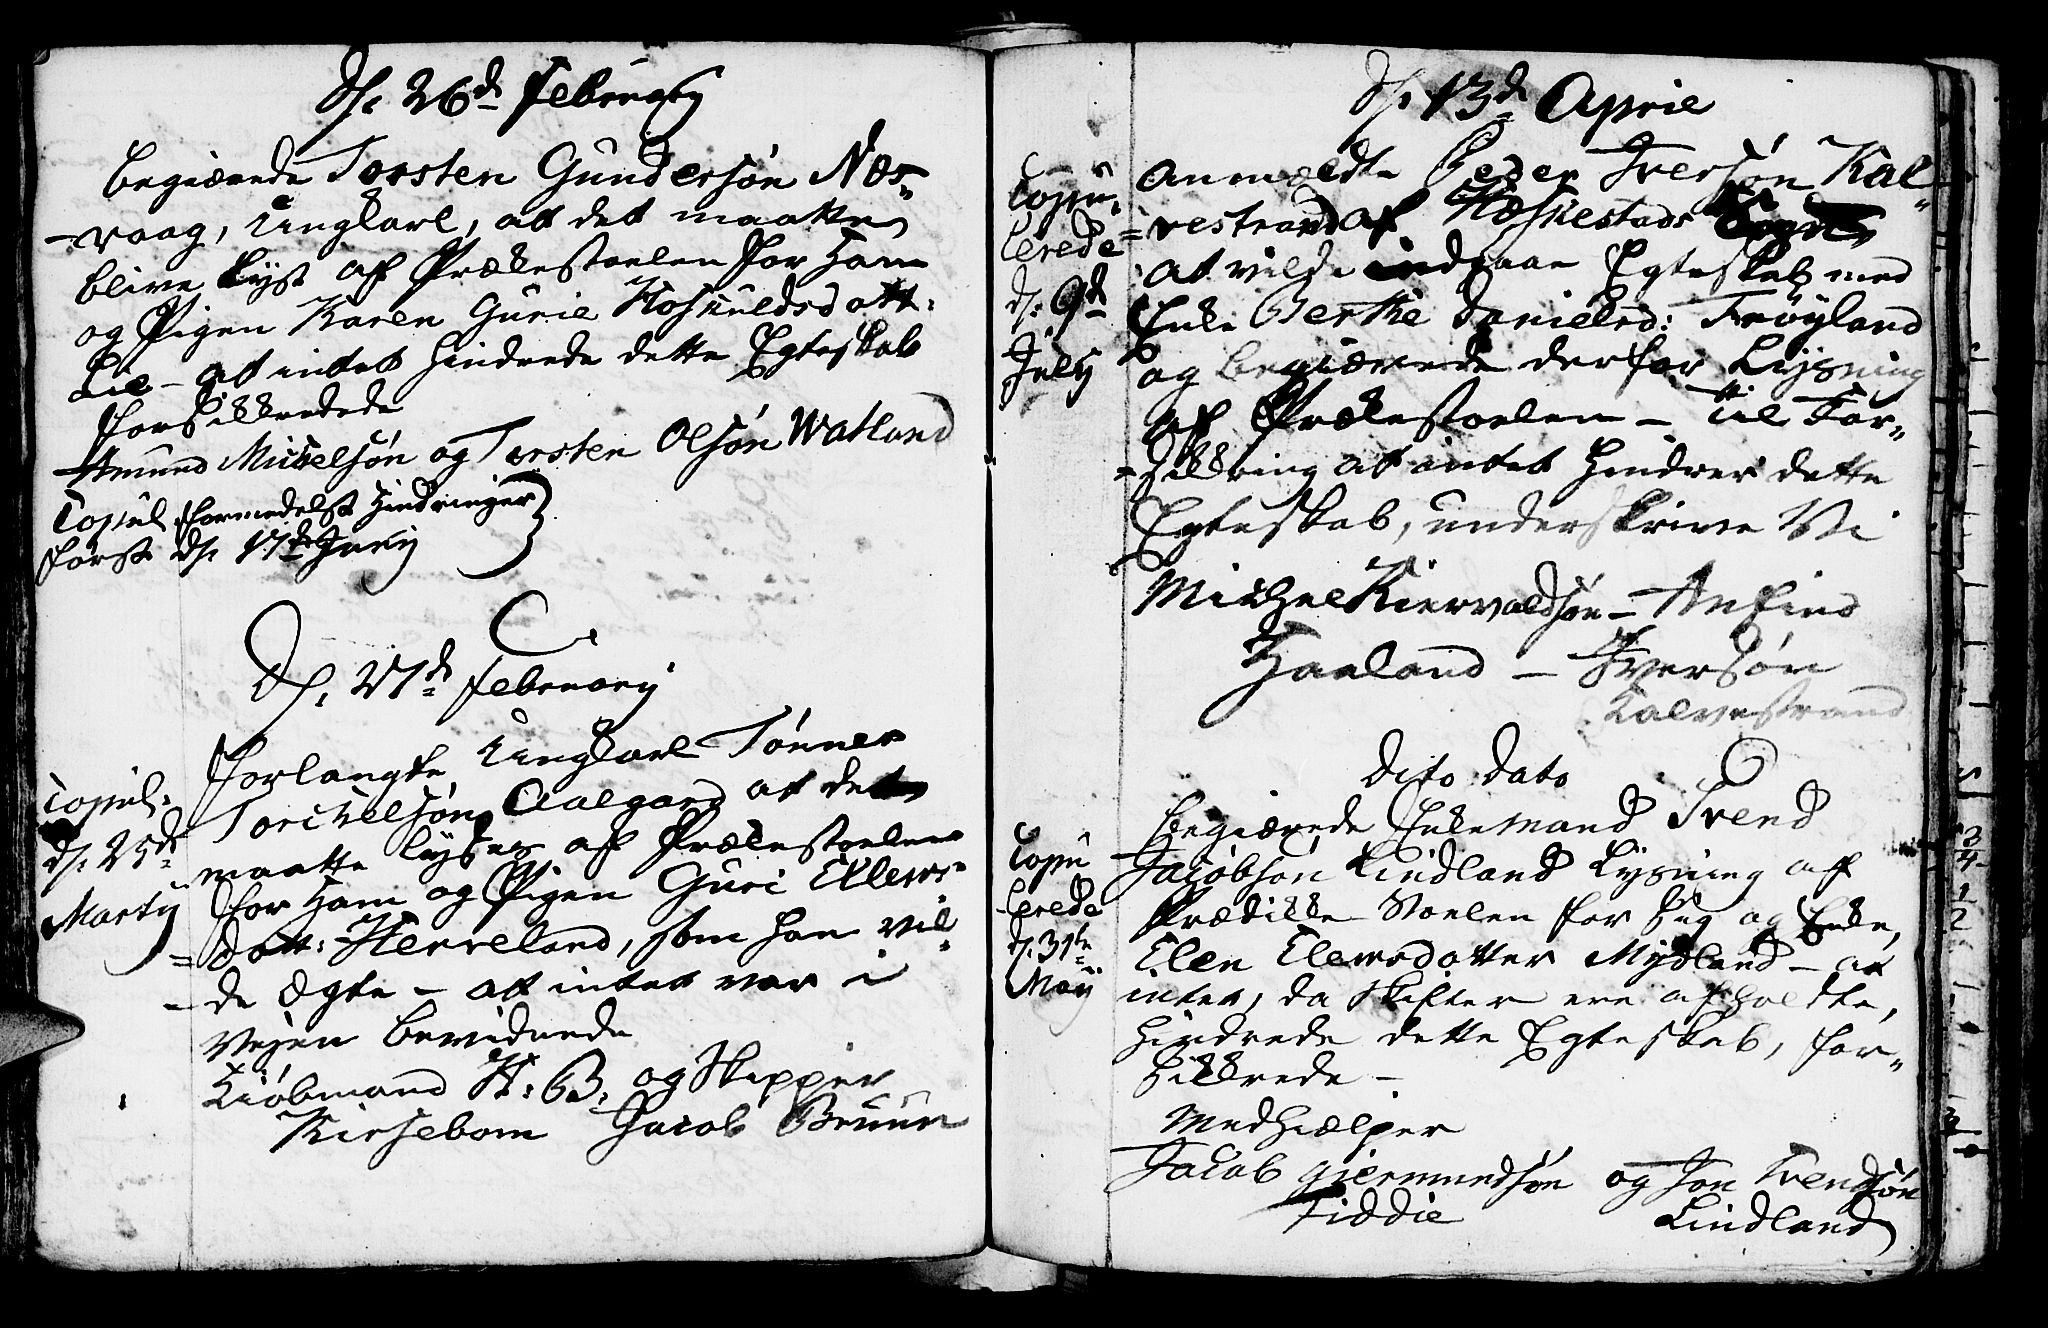 d. 26de February
begiærede Torsten Gundersøn Nes-
-vaag, Ungkarl, at det maatte
blive lyst af Prækestoelen for Ham
og Pigen Karen Gurie Hoskuldsdott:
Lie - at intet hindrede dette Egteskab
forsikkrede
Amund Michelsøn og Torsten Olsøn Watland
Copul. formedelst Hindringer
først d. 17de Juny
d. 27de February
forlangte Ungkarl Tønnes
Torchelsøn Aalgard at det
maatte lyses af Prækestoelen
for Ham og Pigen Guri Ellevs-
= dott: Herreland, som han vil-
- de Ægte - at intet var i
Vejen bevidnede
Kiøbmand H: B. og Skipper
Kirsebom Jacob Bruun
Copul:
d. 25de
Marty
d. 13de April
anmældte Peder Iversøn Kal-
= vestrand af Heskestads Sogn
at vilde indgaae Egteskab med
Enke Berthe Danielsd: Frøyland
og begiærede derfor Lysning
af Prækestoelen - Til For-
= sikkring at intet hindrer dette
Egteskab, underskrive Vi
Michel Kiervaldsøn - Anfind
Haaland - Iversøn
Kalvestrand
Copu-
lerede
d. 9de
July
dito dato
begiærede Enkemand Svend
Jacobsøn Lindland Lysning af
Prædikke Stoelen for Sig og Enke,
Elen Elevsdotter Mydland - at
intet, da Skifter ere afholdte,
hindrede dette Egteskab, for-
sikkrede -
Medhiælper
Jacob Giermundsøn og Jon Svendsøn
Fiddie Lindland
Copu
lerede
d. 31te
May